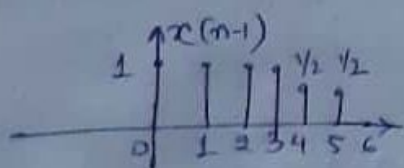 x(n-1)
1 1/2 1/2
0 1 2 3 4 5 6